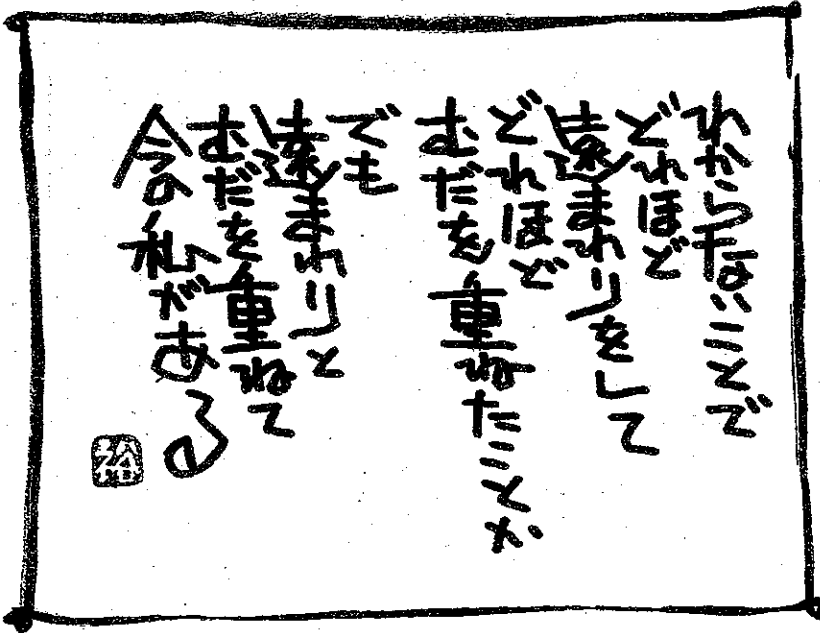 わからないことで
どれほど
遠まわりをして
どれほど
むだを重ねたことか
でも
遠まわりと
むだを重ねて
今の私がある